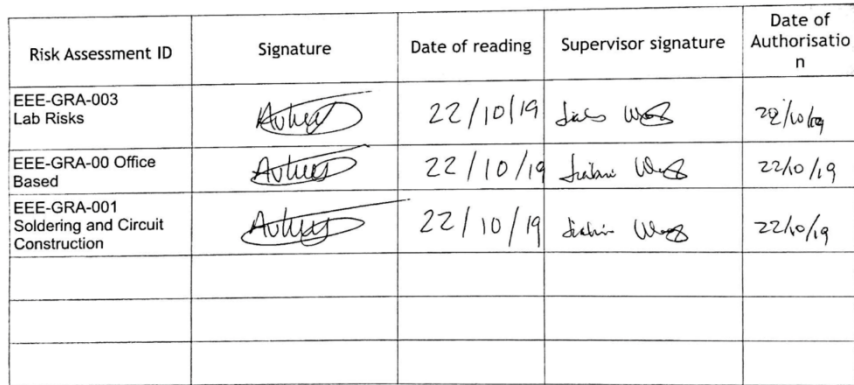 Risk Assessment ID Signature Date of reading Supervisor signature Date of
Authorisatio
n
EEE-GRA-003
Lab Risks
22/10/19 22/10/19
EEE-GRA-00 Office
Based
22/10/19 22/10/19
EEE-GRA-001
Soldering and Circuit
Construction
22/10/19 22/10/19